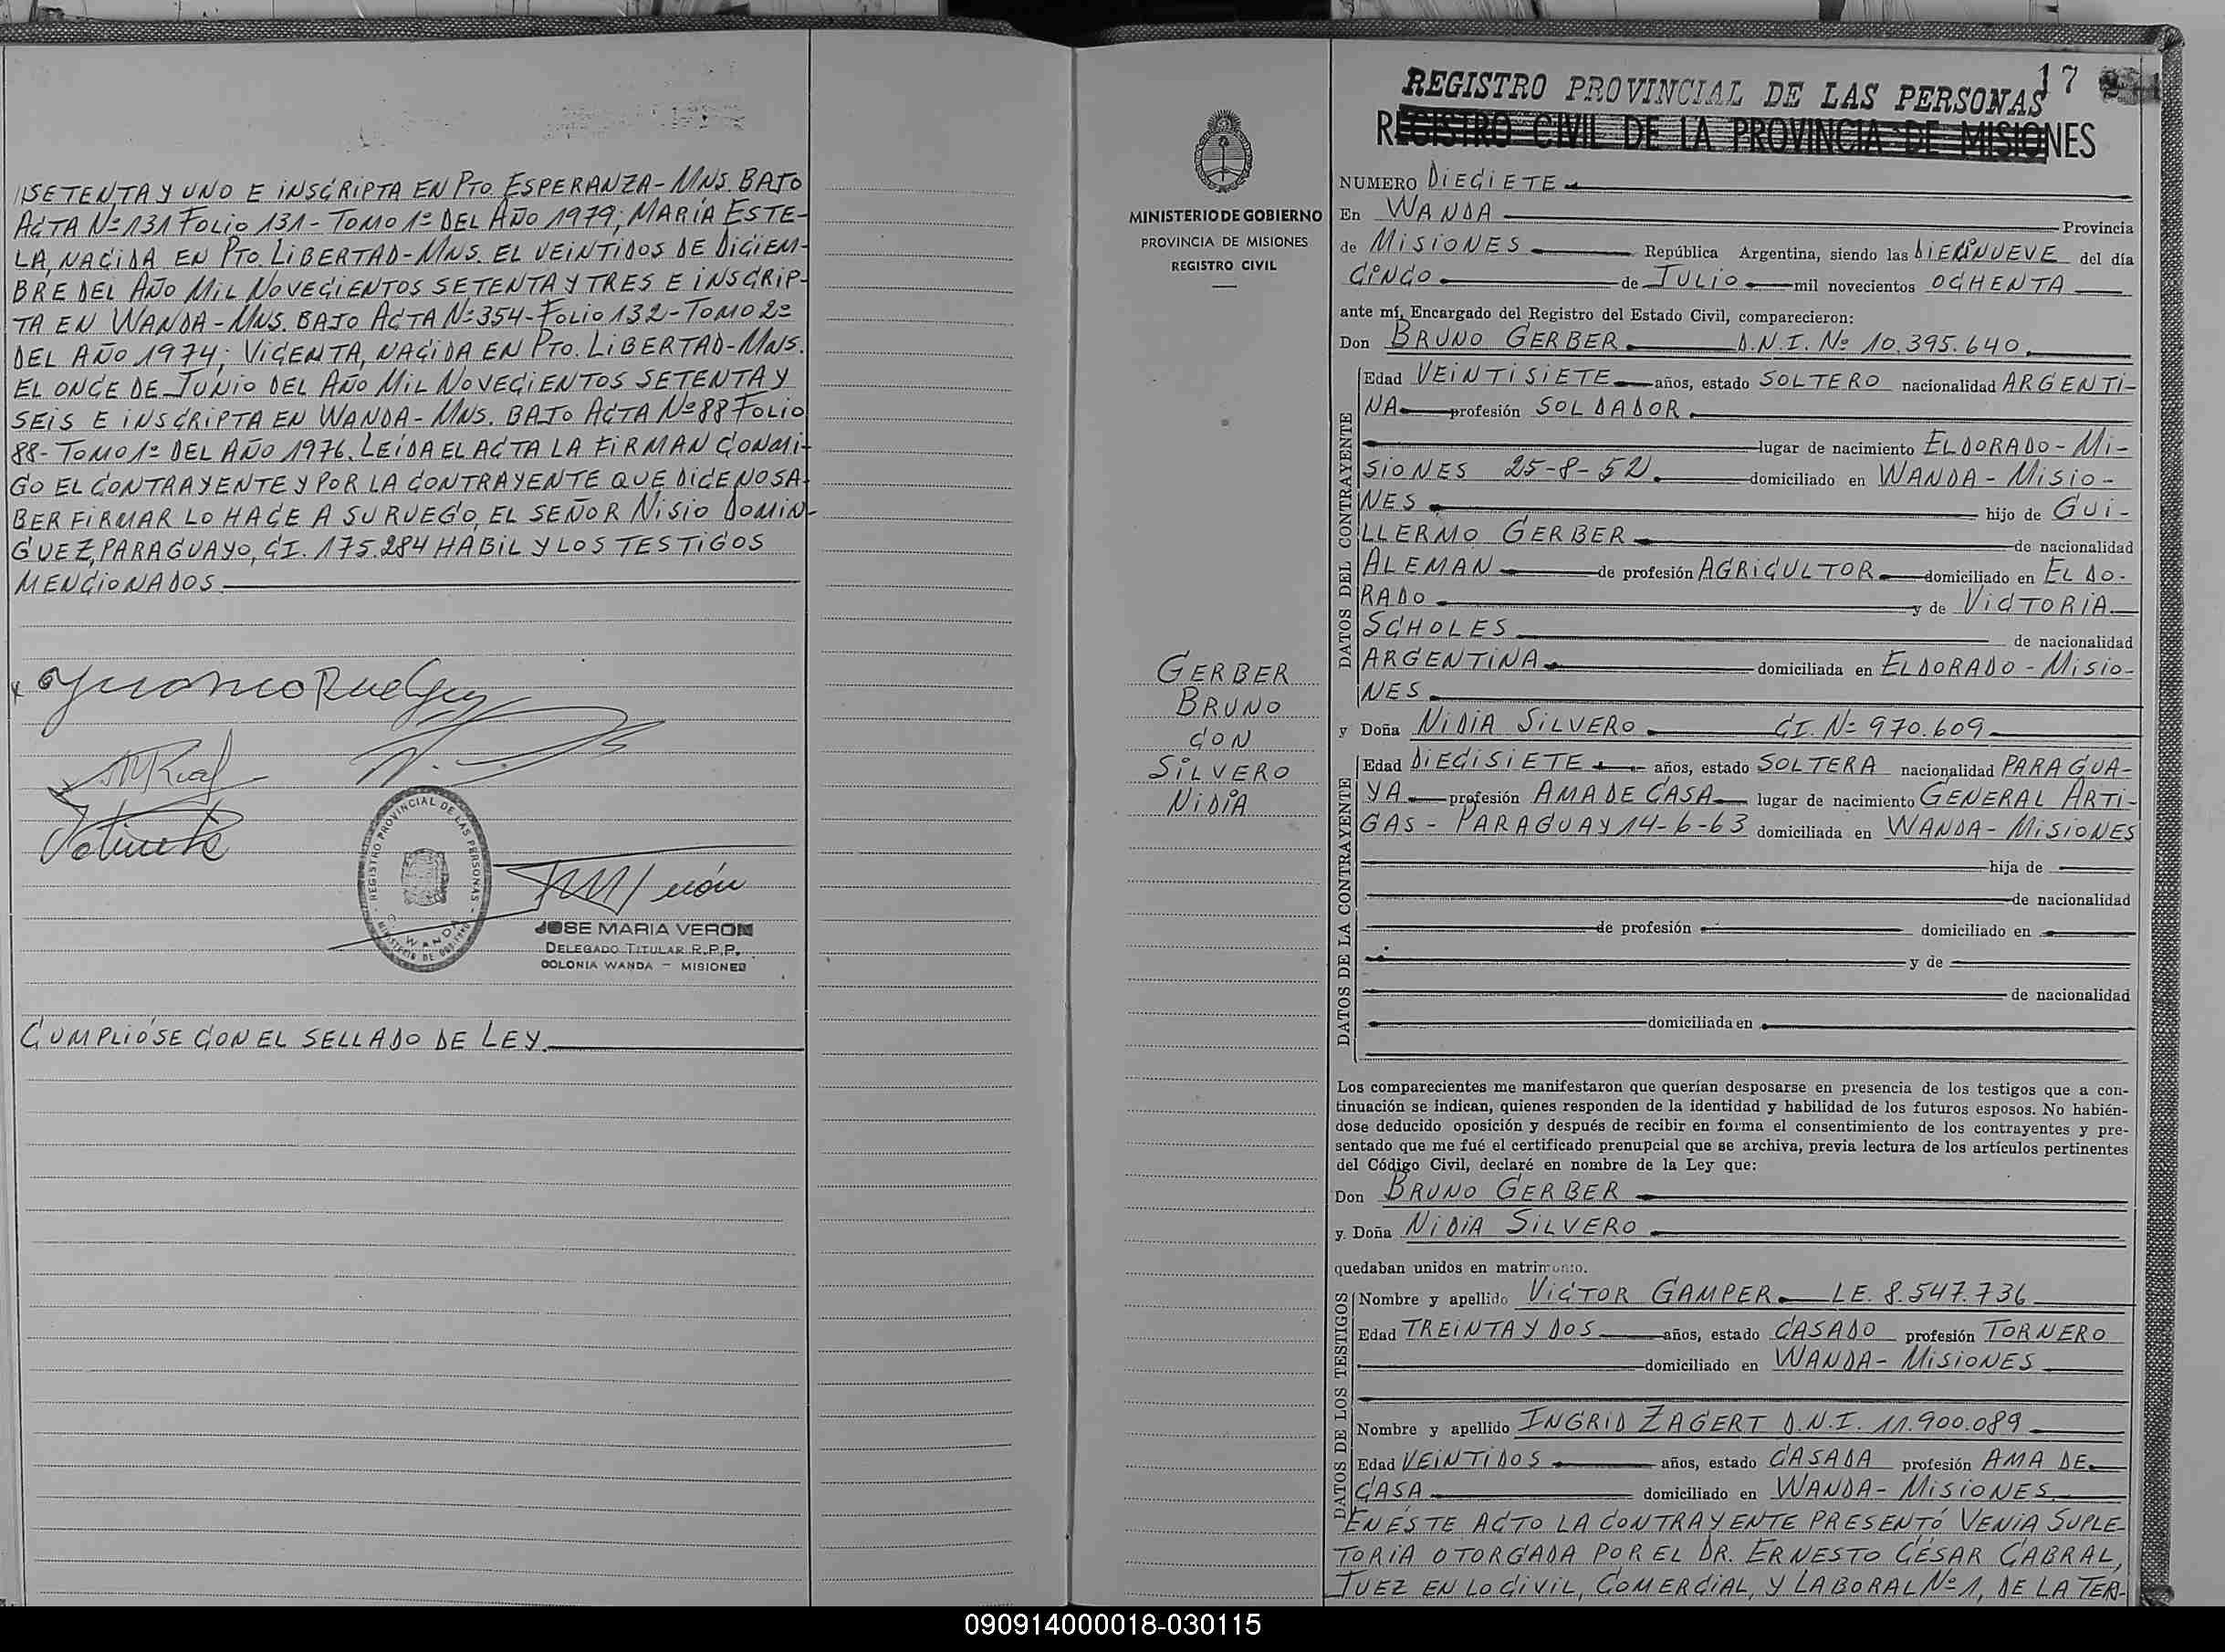 //SETENTA Y UNO E INSCRIPTA EN PTO. ESPERANZA-MNS. BAJO
ACTA Nº 131 FOLIO 131-TOMO 1º DEL AÑO 1979; MARÍA ESTE-
LA, NACIDA EN PTO. LIBERTAD-MNS. EL VEINTIDOS DE DICIEM-
BRE DEL AÑO MIL NOVECIENTOS SETENTA Y TRES E INSCRIP-
TA EN WANDA-MNS. BAJO ACTA Nº 354-FOLIO 132-TOMO 2º
DEL AÑO 1974; VICENTA, NACIDA EN PTO. LIBERTAD-MNS.
EL ONCE DE JUNIO DEL AÑO MIL NOVECIENTOS SETENTA Y
SEIS E INSCRIPTA EN WANDA-MNS. BAJO ACTA Nº 88 FOLIO
88-TOMO 1º DEL AÑO 1976. LEÍDA EL ACTA LA FIRMAN CONMI-
GO EL CONTRAYENTE Y POR LA CONTRAYENTE QUE DICE NO SA-
BER FIRMAR LO HACE A SU RUEGO, EL SEÑOR NISIO DOMIN-
GUEZ, PARAGUAYO, CI. 175.284 HÁBIL Y LOS TESTIGOS
MENCIONADOS.
REGISTRO PROVINCIAL DE LAS PERSONAS
WANDA
JOSE MARIA VERON
DELEGADO TITULAR R.P.P.
COLONIA WANDA - MISIONES
CUMPLIÓSE CON EL SELLADO DE LEY.
MINISTERIO DE GOBIERNO
PROVINCIA DE MISIONES
REGISTRO CIVIL
GERBER
BRUNO
CON
SILVERO
NIDIA
17
REGISTRO PROVINCIAL DE LAS PERSONAS
REGISTRO CIVIL DE LA PROVINCIA DE MISIONES
NUMERO DIECIETE
En WANDA Provincia
de MISIONES República Argentina, siendo las DIECINUEVE del día
CINCO de JULIO mil novecientos OCHENTA
ante mí, Encargado del Registro del Estado Civil, comparecieron:
Don BRUNO GERBER D.N.I. Nº 10.395.640.
DATOS DEL CONTRAYENTE
Edad VEINTISIETE años, estado SOLTERO nacionalidad ARGENTI-
NA profesión SOLDADOR.
lugar de nacimiento ELDORADO-MI-
SIONES 25-8-52. domiciliado en WANDA-MISIO-
NES hijo de GUI-
LLERMO GERBER de nacionalidad
ALEMAN de profesión AGRICULTOR domiciliado en ELDO-
RADO y de VICTORIA
SCHOLES de nacionalidad
ARGENTINA domiciliada en ELDORADO-MISIO-
NES
y Doña NIDIA SILVERO CI. Nº 970.609
DATOS DE LA CONTRAYENTE
Edad DIECISIETE años, estado SOLTERA nacionalidad PARAGUA-
YA profesión AMA DE CASA lugar de nacimiento GENERAL ARTI-
GAS-PARAGUAY 14-6-63 domiciliada en WANDA-MISIONES
hija de
de nacionalidad
de profesión domiciliado en
y de
de nacionalidad
domiciliada en
Los comparecientes me manifestaron que querían desposarse en presencia de los testigos que a con-
tinuación se indican, quienes responden de la identidad y habilidad de los futuros esposos. No habién-
dose deducido oposición y después de recibir en forma el consentimiento de los contrayentes y pre-
sentado que me fué el certificado prenupcial que se archiva, previa lectura de los artículos pertinentes
del Código Civil, declaré en nombre de la Ley que:
Don BRUNO GERBER
y. Doña NIDIA SILVERO
quedaban unidos en matrimonio.
DATOS DE LOS TESTIGOS
Nombre y apellido VICTOR GAMPER LE. 8.547.736
Edad TREINTA Y DOS años, estado CASADO profesión TORNERO
domiciliado en WANDA-MISIONES
Nombre y apellido INGRID ZAGERT D.N.I. 11.900.089
Edad VEINTIDOS años, estado CASADA profesión AMA DE
CASA domiciliado en WANDA-MISIONES.
EN ÉSTE ACTO LA CONTRAYENTE PRESENTÓ VENIA SUPLE-
TORIA OTORGADA POR EL DR. ERNESTO CÉSAR CABRAL,
JUEZ EN LO CIVIL, COMERCIAL, Y LABORAL Nº 1, DE LA TER-
090914000018-030115